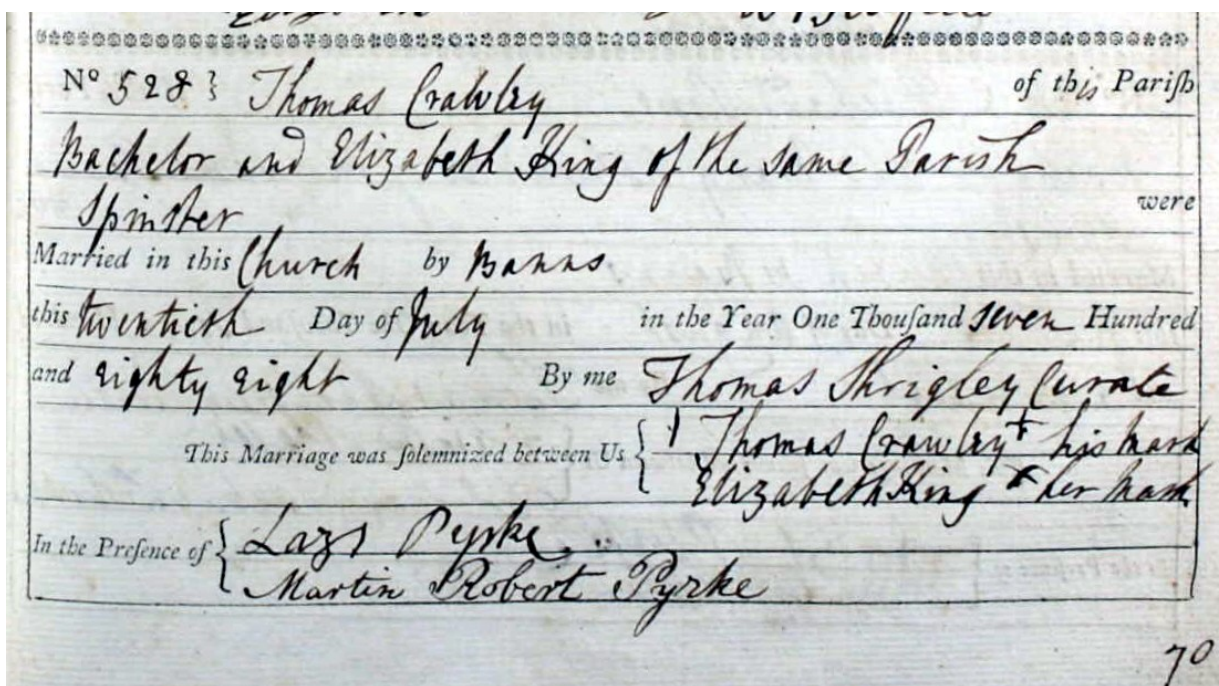 No 528 } Thomas Crawley of this Parish
Bachelor and Elizabeth King of the same Parish
Spinster were
Married in this Church by Banns
this twentieth Day of July in the Year One Thouſand seven Hundred
and eighty eight By me Thomas Shrigley Curate
This Marriage was ſolemnized between Us { Thomas Crawley + his mark
Elizabeth King + her mark
In the Preſence of { Lazs Pyrke
Martin Robert Pyrke
70